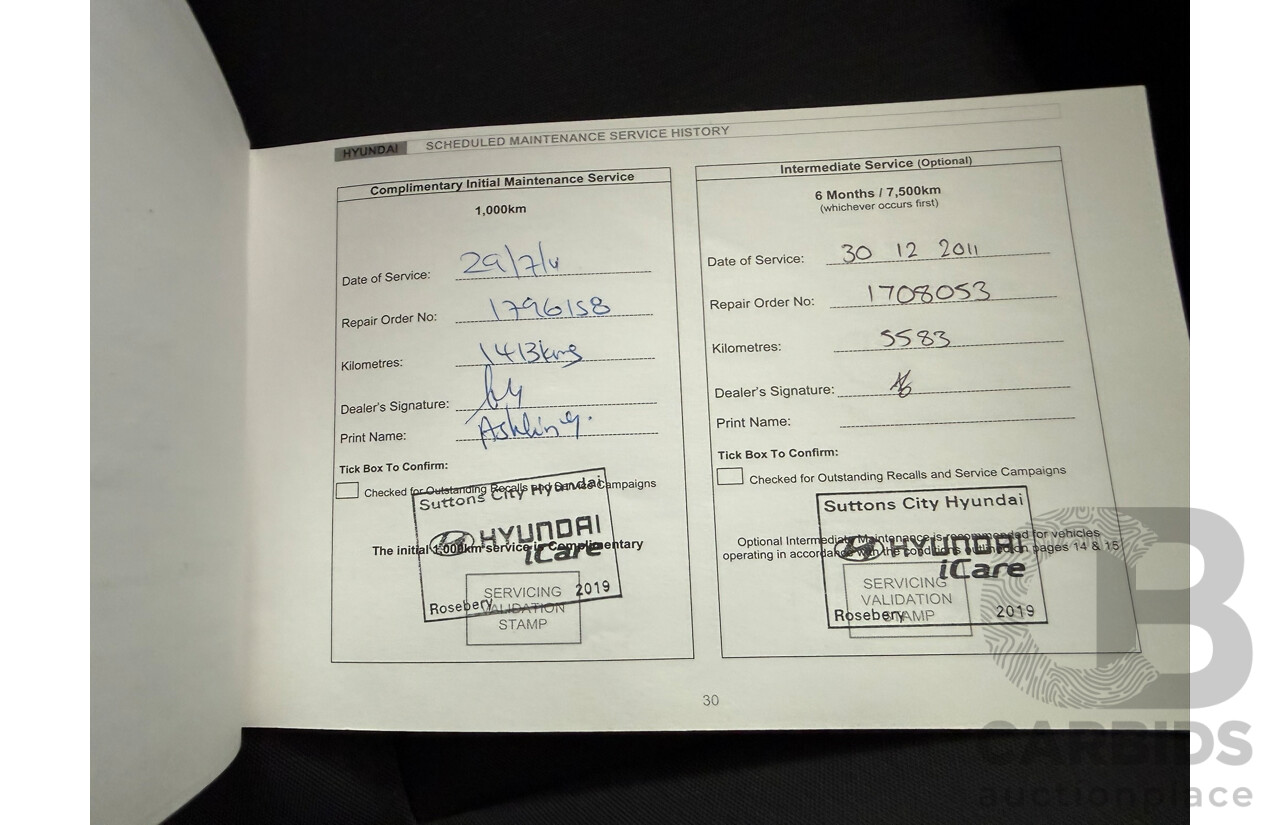 HYUNDAI SCHEDULED MAINTENANCE SERVICE HISTORY
Complimentary Initial Maintenance Service
1,000km
Date of Service: 29/7/11
Repair Order No: 1796158
Kilometres: 1413kms
Dealer's Signature:
Print Name:
Tick Box To Confirm:
Checked for Outstanding Recalls and Service Campaigns
Suttons City Hyundai
HYUNDAI
The initial 1,000km service is Complimentary
iCare
SERVICING
VALIDATION
STAMP
Rosebery 2019
Intermediate Service (Optional)
6 Months / 7,500km
(whichever occurs first)
Date of Service: 30 12 2011
Repair Order No: 1708053
Kilometres: 5583
Dealer's Signature:
Print Name:
Tick Box To Confirm:
Checked for Outstanding Recalls and Service Campaigns
Suttons City Hyundai
HYUNDAI
Optional Intermediate Maintenance is recommended for vehicles
operating in accordance with the conditions outlined on pages 14 & 15
iCare
SERVICING
VALIDATION
STAMP
Rosebery 2019
30
CARBIDS
auctionplace